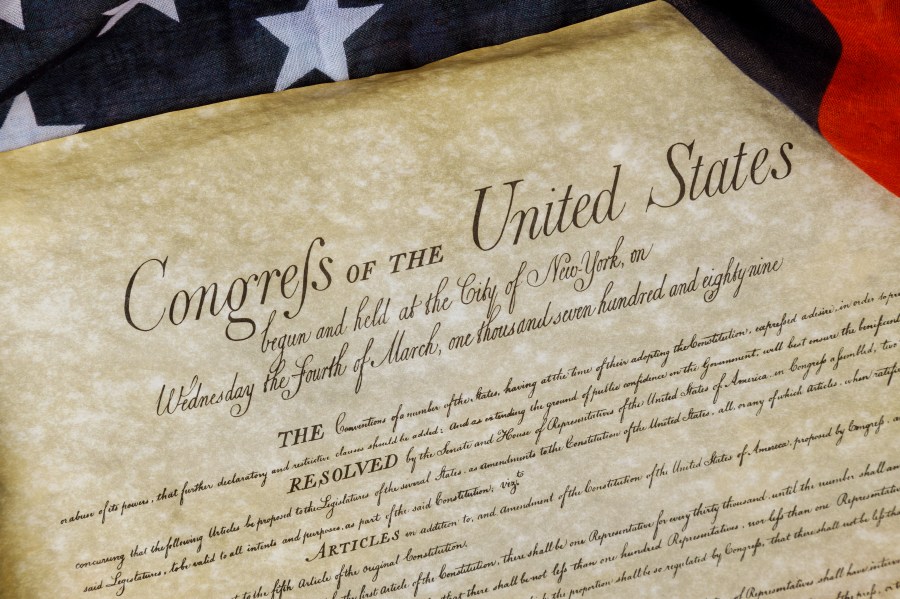 Congreſs OF THE United States
begun and held at the City of New-York, on
Wednesday the Fourth of March, one thousand seven hundred and eighty nine
THE Conventions of a number of the States, having at the time of their adopting the Constitution, expreſsed a desire, in order to
or abuse of its powers, that further declaratory and restrictive clauses should be added: And as extending the ground of public confidence in the Government, will best ensure the beneficent
RESOLVED by the Senate and House of Representatives of the United States of America, in Congreſs aſsembled, two
concurring that the following Articles be proposed to the Legislatures of the several States, as amendments to the Constitution of the United States, all, or any of which Articles, when
said Legislatures, to be valid to all intents and purposes, as part of the said Constitution; vizt
ARTICLES in addition to, and Amendment of the Constitution of the United States of America, proposed by Congreſs,
to the fifth Article of the original Constitution.
first Article of the Constitution, there shall be one Representative for every thirty thousand, until the number shall
that there shall be not leſs than one hundred Representatives, nor leſs than one
the proportion shall be so regulated by Congreſs, that there shall not be leſs
of Representatives shall have